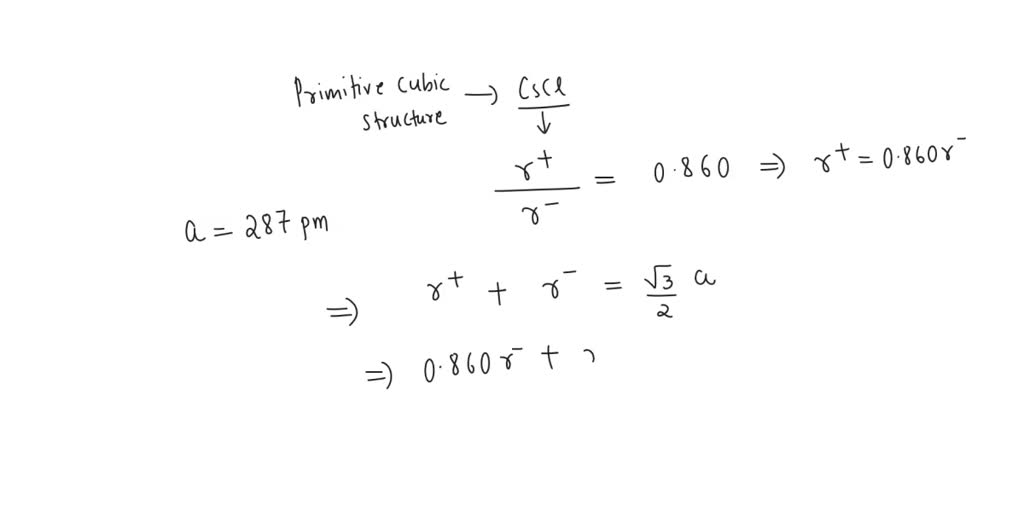 Primitive cubic → CsCl
structure ↓
r⁺/r⁻ = 0.860 ⇒ r⁺ = 0.860r⁻
a = 287 pm
⇒ r⁺ + r⁻ = √3/2 a
⇒ 0.860 r⁻ +